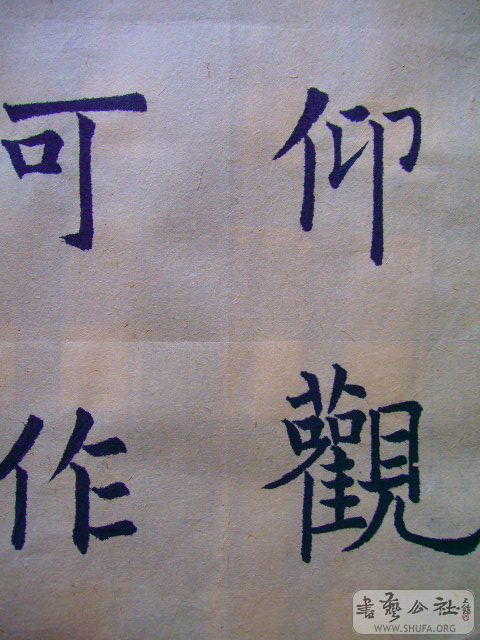 仰觀
可作
書藝公社
WWW.SHUFA.ORG